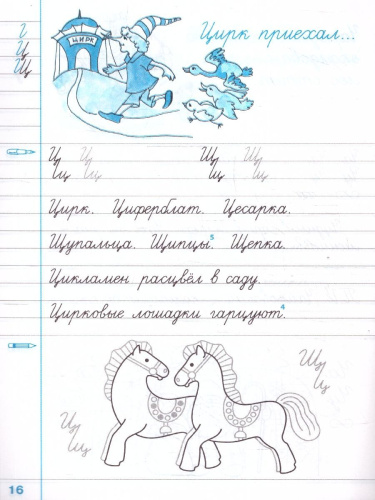 Г
Ц
Щ
ЦИРК
Цирк приехал...
Ц Ц Щ Щ
ц ц щ щ
Цирк. Циферблат. Цесарка.
Щупальца. Щипцы.⁵ Щепка.
Цикламен расцвёл в саду.
Цирковые лошадки гарцуют⁴.
Щ
ц
Ц
щ
16